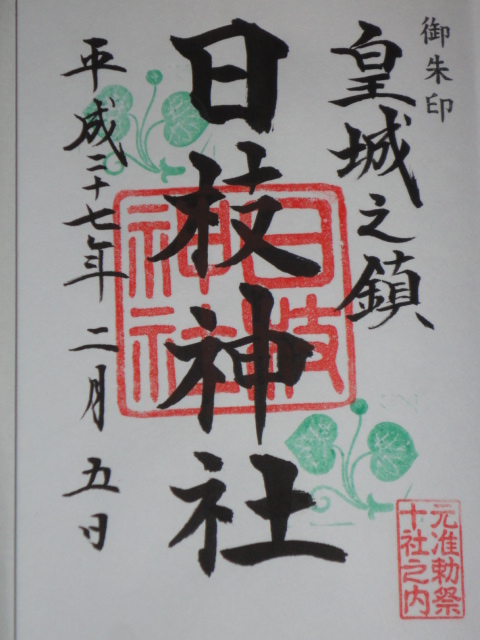 御朱印
皇城之鎮
日枝神社
日枝
神社
平成二十七年二月五日
元准勅祭
十社之内